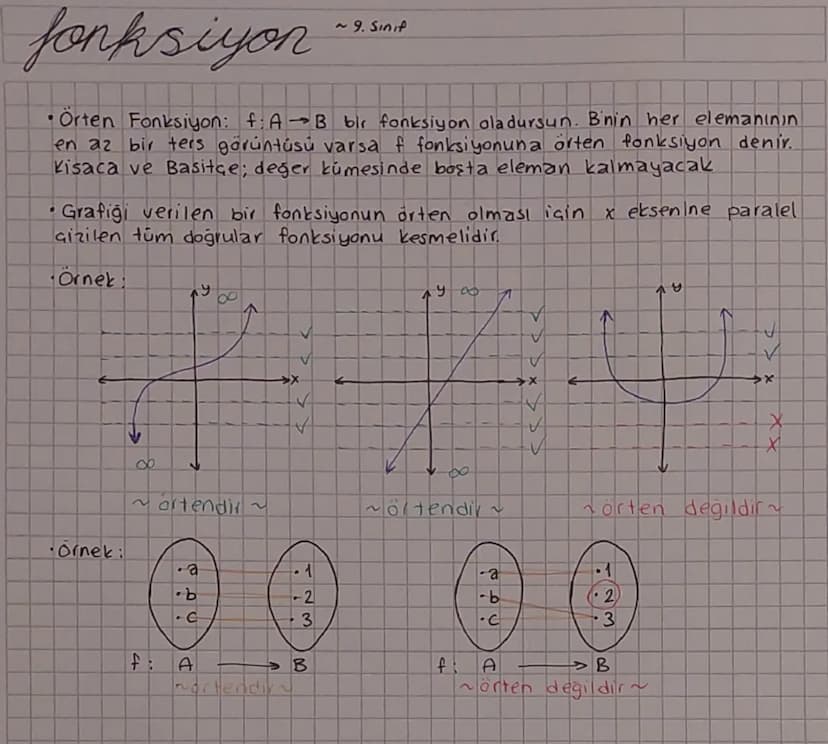 fonksiyon ~ 9. Sınıf
• Örten Fonksiyon: f: A → B bir fonksiyon oladursun. B'nin her elemanının
en az bir ters görüntüsü varsa f fonksiyonuna örten fonksiyon denir.
Kısaca ve Basitçe; değer kümesinde boşta eleman kalmayacak
• Grafiği verilen bir fonksiyonun örten olması için x eksenine paralel
çizilen tüm doğrular fonksiyonu kesmelidir.
• Örnek:
y ∞ x ∞
y ∞ x ∞
y x
~ örtendir ~ ~ örtendir ~ ~ örten değildir ~
• Örnek:
• a • 1 • a • 1
• b • 2 • b • 2
• c • 3 • c • 3
f: A → B f: A → B
~ örtendir ~ ~ örten değildir ~